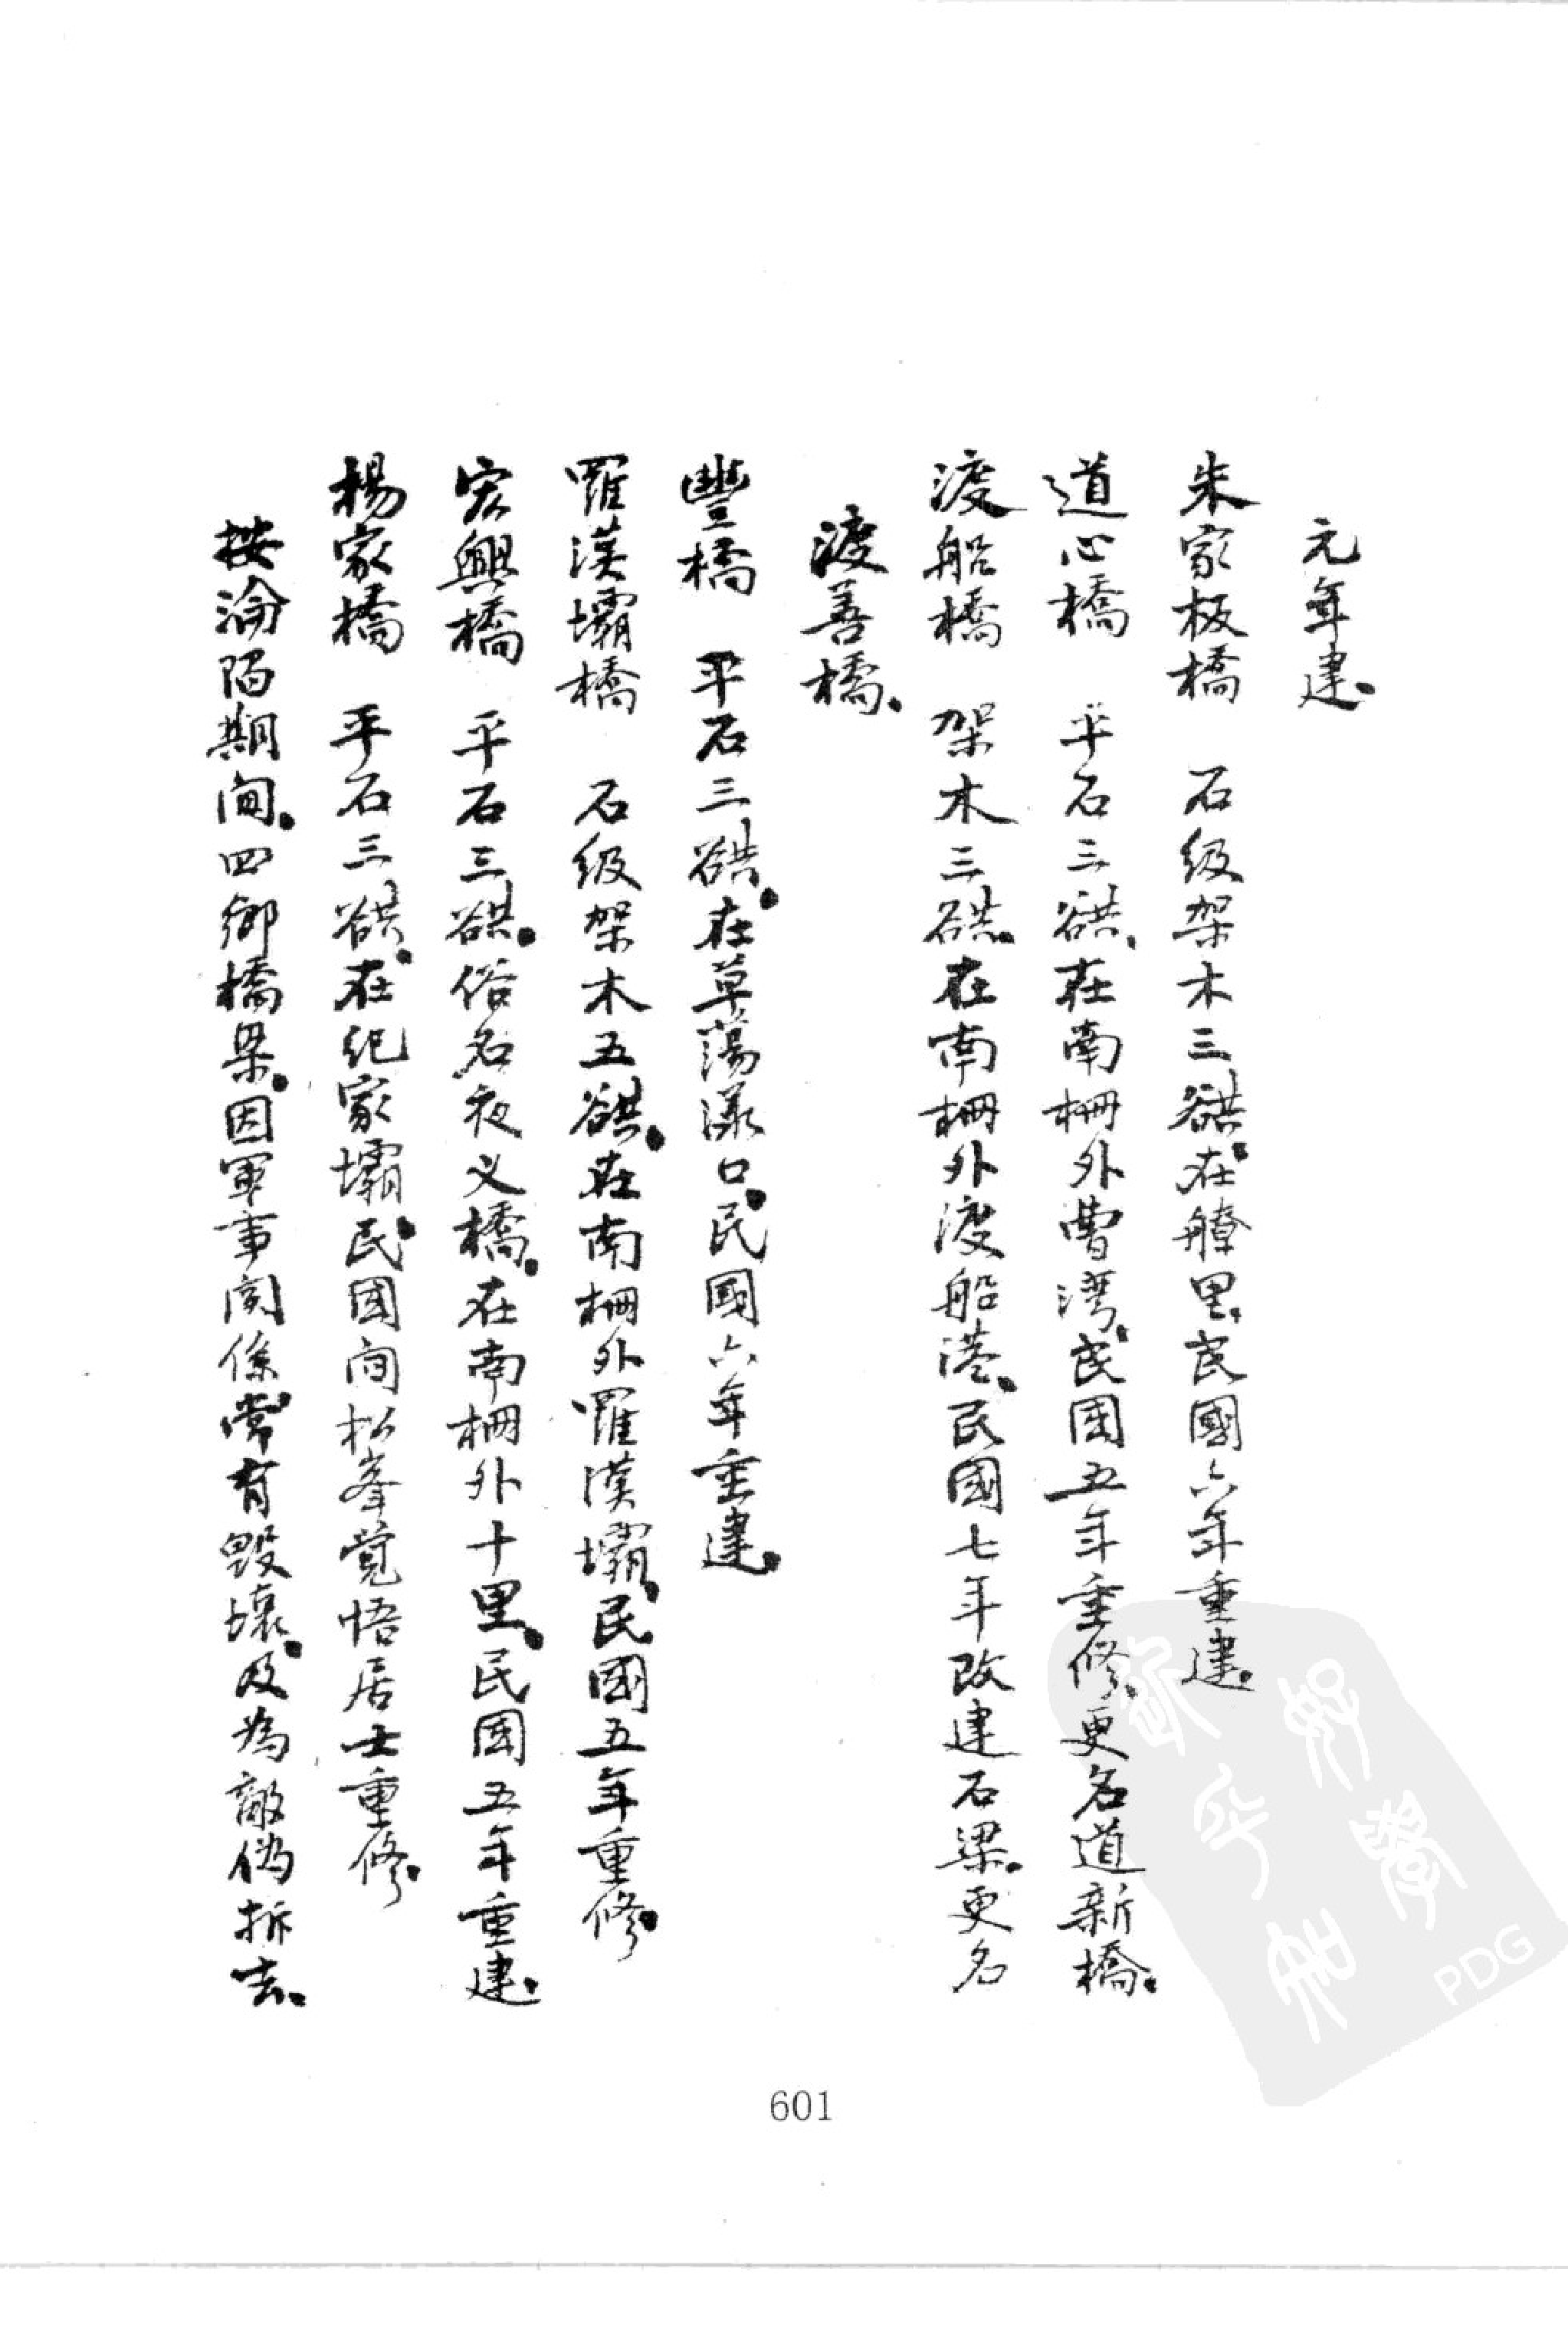 元年建。
朱家板橋　石級架木三䜫。在䑠里。民國六年重建。
道心橋　平石三䜫、在南柵外曹灣。民國五年重修、更名道新橋。
渡船橋　架木三䜫。在南柵外渡船港、民國七年改建石梁。更名
渡善橋。
豐橋　平石三䜫。在草蕩漾口。民國六年重建。
羅漢壩橋　石級架木五䜫。在南柵外羅漢壩。民國五年重修。
宏興橋　平石三䜫。俗名夜义橋。在南柵外十里。民國五年重建。
楊家橋　平石三䜫。在纪家壩。民國间松峯覚悟居士重修。
按淪陷期间。四鄉橋梁。因軍事関係。常有毁壞。及為敵偽拆去。
601
PDG